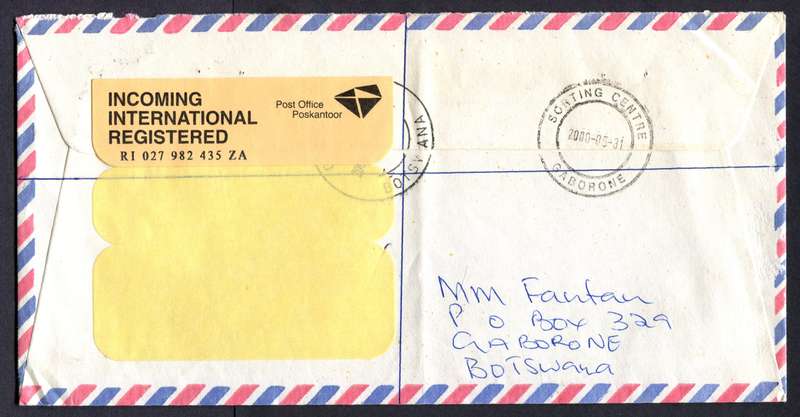 INCOMING
INTERNATIONAL
REGISTERED
RI 027 982 435 ZA
Post Office
Poskantoor
BOTSWANA
SORTING CENTRE
2000-05-31
GABORONE
MM Fantan
P O Box 329
GABORONE
BOTSWANA